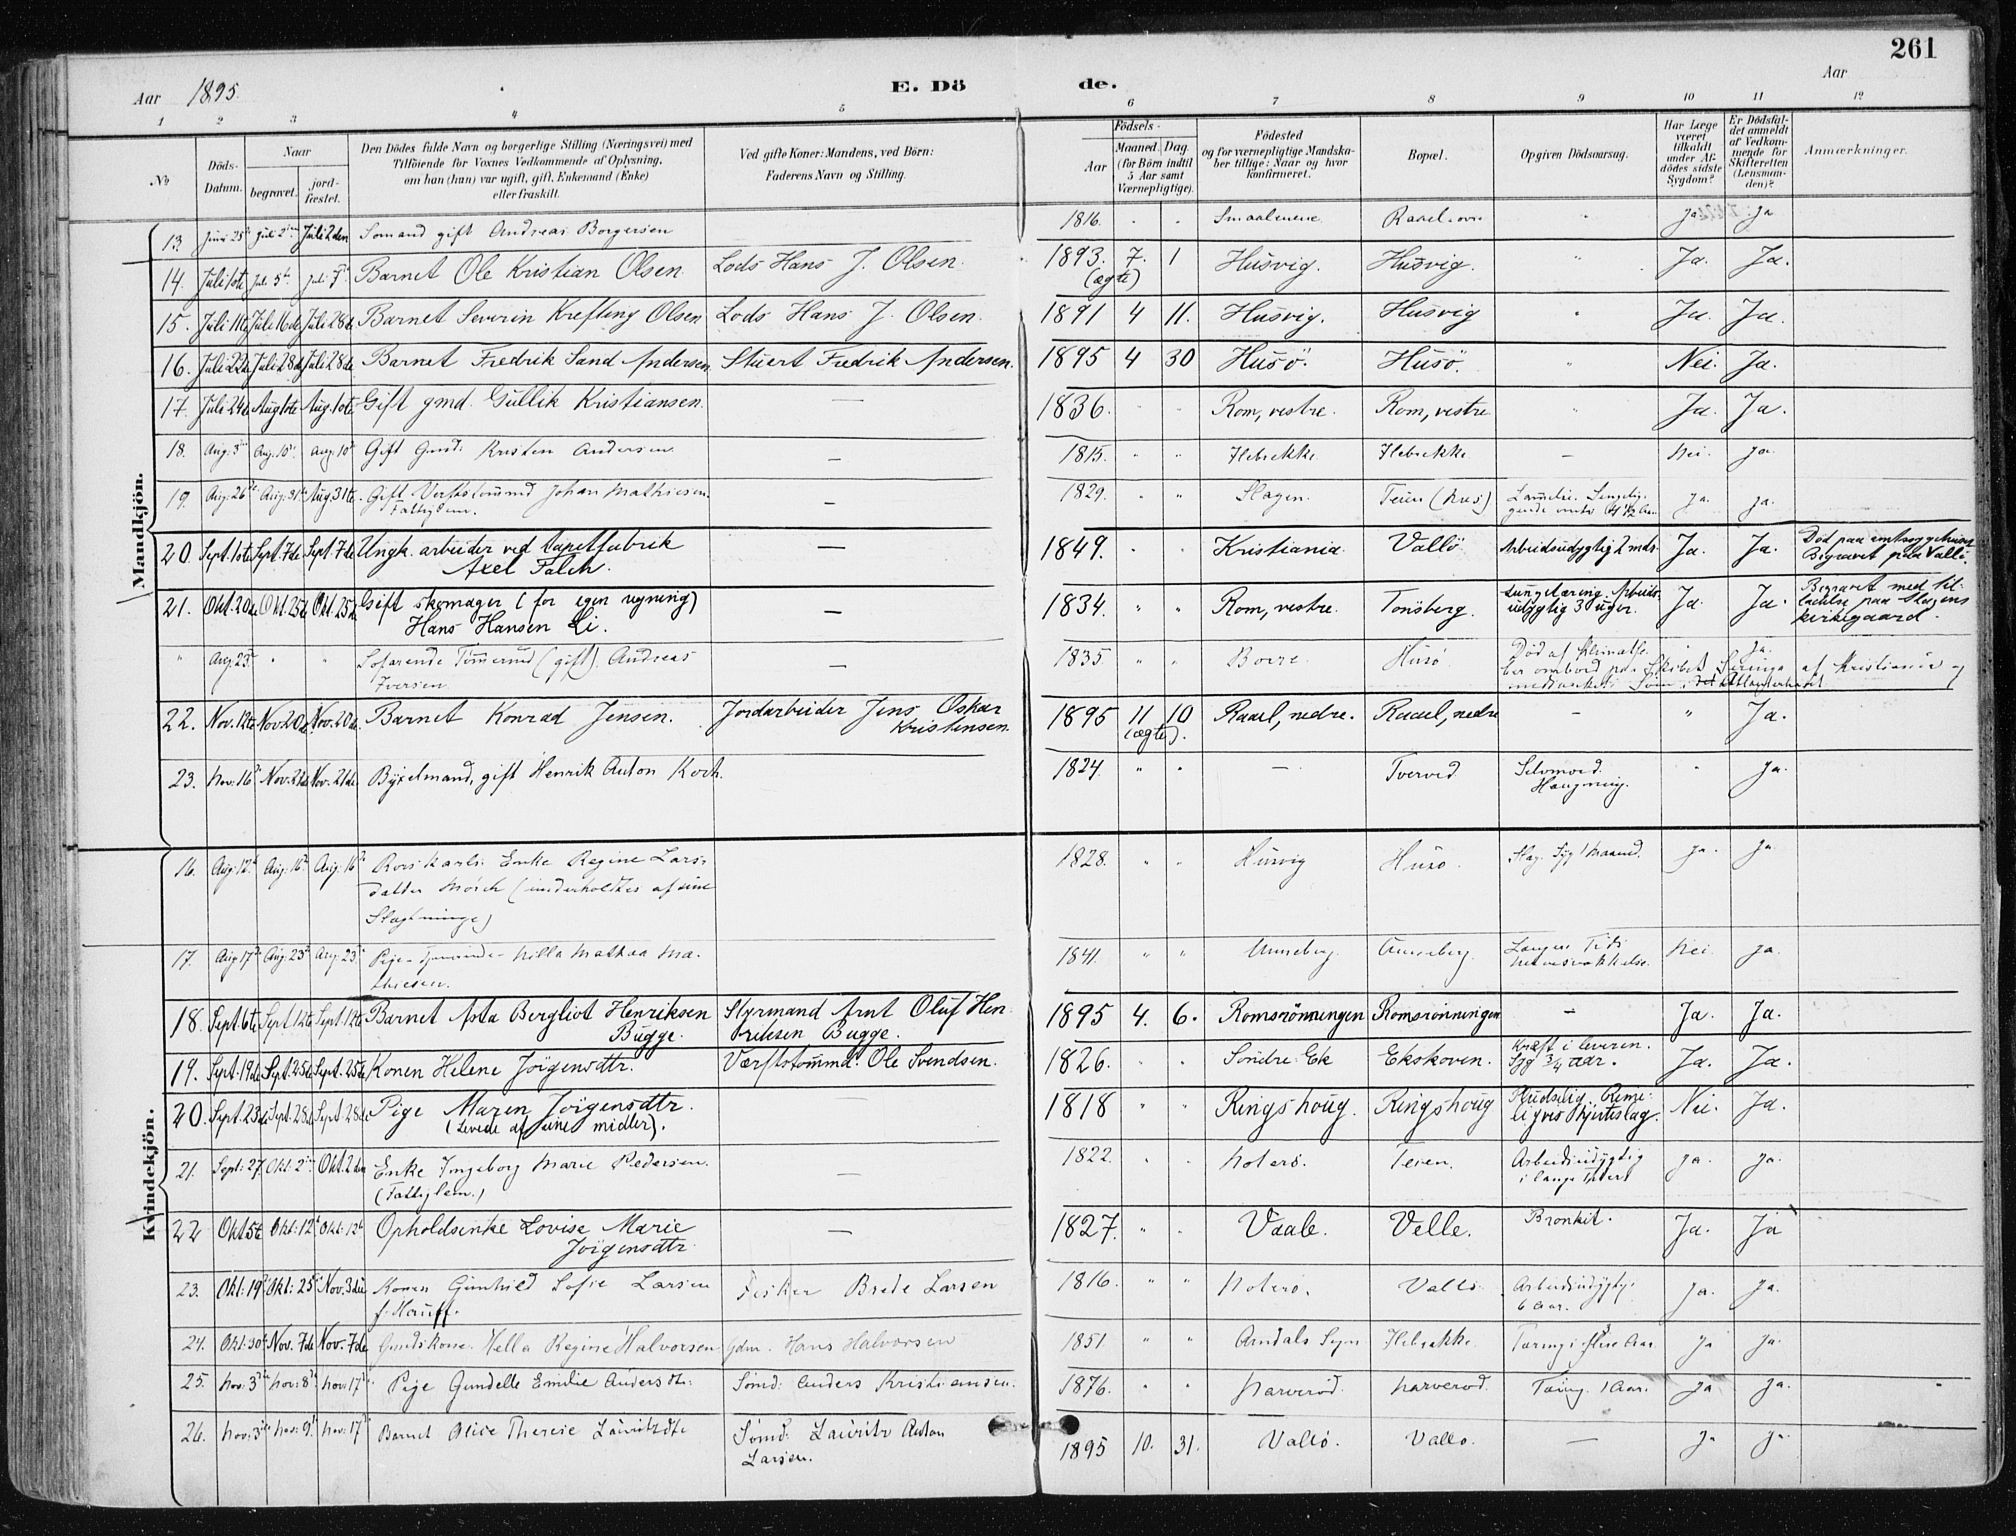 261
Aar 1895.
E. Dö de.
Aar
1 2 3 4 5 6 7 8 9 10 11 12
No
Döds-Datum.
Naar
begravet.
jord-fæstet.
Den Dödes fulde Navn og borgerlige Stilling (Næringsvei) med
Tilföiende for Voxnes Vedkommende af Oplysning,
om han (hun) var ugift, gift, Enkemand (Enke)
eller fraskilt.
Ved gifte Koner: Mandens, ved Börn:
Faderens Navn og Stilling.
Födsels-
Aar
Maaned. Dag.
(for Börn indtil
5 Aar samt
Værnepligtige).
Födested
og for værnepligtige Mandska-
ber tillige: Naar og hvor
konfirmeret.
Bopæl.
Opgiven Dödsaarsag.
Har Læge
været
tilkaldt
under Af-
dödes sidste
Sygdom?
Er Dödsfal-
det anmeldt
af Vedkom-
mende for
Skifteretten
(Lensman-
den)?
Anmærkninger.
Mandkjön.
13. Juni 25 Juli 2 Juli 2den Sømand gift Andreas Borgersen 1816. " " Smaalenene Raael øvre " Ja Ja
14. Juli 1ste Juli 5te Juli 7de Barnet Ole Kristian Olsen. Lods Hans J. Olsen. 1893. 7. 1 Husvig. Husvig. " Ja. Ja.
(ægte)
15. Juli 11te Juli 16de Juli 28de Barnet Severin Krefting Olsen Lods Hans J. Olsen. 1891 4 11. Husvig. Husvig " Ja. Ja.
16. Juli 22de Juli 28de Juli 28de Barnet Fredrik Sand Andersen Stuert Fredrik Andersen. 1895 4 30 Husö. Husö. " Nei. Ja.
17. Juli 24de Aug 10de Aug. 10de Gift gmd. Gullik Kristiansen. — 1836. " " Rom, vestre. Rom, vestre " Ja. Ja.
18. Aug. 3 Aug. 10 Aug 10 Gift Gmd. Kristen Andersen — 1815. " " Ilebrekke Ilebrekke — Nei. Ja.
19. Aug: 26 Aug: 31 Aug. 31te Gift Verftstømmd Johan Mathiesen. — 1829. " " Slagen. Teien Ja. Ja.
Fattiglem.
20. Sept. 1ste Sept. 7de Sept. 7de Ungk. arbeider ved tapetfabrik — 1849. " " Kristiania. Vallö Arbeidsudygtig 2 mdr. Ja. Ja. Död paa amtssygehuset
Axel Falch. Begravet paa Vallö.
21. Okt. 20de Okt. 25de Okt. 25de Gift skomager (for egen regning) — 1834. " " Rom, vestre. Tönsberg. Lungetæring. Arbeids-
udygtig 3 uger. Ja. Ja. Begravet med til-
Hans Hansen Li. ladelse paa Slagens
kirkegaard.
" Aug. 23. " " Søfarende Tømmermd (gift) Andreas — 1835 " " Borre. Husø Død af Klimatfe- " Ja.
Iversen. ber ombord paa Skibet Syringa af Kristiania og
22. Nov. 12te Nov 20de Nov. 20de Barnet Konrad Jensen. Jordarbeider Jens Oskar 1895 11 10 Raael, nedre. Raael, nedre — " Ja.
Kristensen. (ægte).
23. Nov. 16 Nov. 21de Nov. 21de Byxelmand, gift Henrik Anton Koch. 1824. " " — Tverved Selvmord. " Ja.
Hængning.
Kvindekjön.
16. Aug: 12 Aug. 16 Aug: 16 Enke Regine Lars- 1828. " " Husvig Husø. Slag. Syg 1 Maaned. Ja. Ja.
datter Mørch (underholdtes af sine
Slægtninge)
17. Aug 17 Aug. 23 Aug. 23 Pige Milla Mathea Ma- 1841. " " Unneberg Unneberg. Længere Tids Nei. Ja.
thiesen. Nervesvækkelse.
18. Sept. 6te Sept. 12te Sept. 12te Barnet Asta Bergliot Henriksen Styrmand Arnt Oluf Hen- 1895 4. 6. Romsrönningen Romsrönningen — Ja. Ja.
Bugge. riksen Bugge.
19. Sept. 19de Sept. 25de Sept. 25de Konen Helene Jörgensdtr. Værftstömmd. Ole Svendsen. 1826. " " Söndre Ek Ekskoven. Kræft i leveren.
Syg 3/4 aar. Ja. Ja.
20. Sept. 23de Sept. 28de Sept. 28de Pige Maren Jörgensdtr. — 1818 " " Ringshoug. Ringshoug Pludselig. Rime-
ligvis hjerteslag. Nei. Ja.
(Levede af sine midler).
21. Sept: 27. Okt: 2 Okt. 2den Enke Ingeborg Marie Pedersen. — 1822. " " Nøterø. Teien. Arbeidsudygtig Ja. Ja.
(Fattiglem.) i lange Tider
22 Okt. 5te Okt: 12 Okt: 12 Opholdsenke Lovise Marie — 1827. " " Vaale. Velle. Bronkit. Ja. Ja
Jörgensdtr.
23. Okt: 19 Okt: 25 Nov. 3die Konen Gunhild Sofie Larsen Fisker Brede Larsen 1816. " " Nøterø. Vallø. Arbeidsudygtig. Ja. Ja.
f. Hauff. 6 Aar.
24. Okt: 30 Nov. 7de Nov. 7de Gmdskone. Hella Regine Halvorsen Gdm. Hans Halvorsen 1851. " " Arndals Sogn Ilebrekke Tæring i flere Aar. Ja Ja.
25. Nov: 3 Nov: 8 Nov: 17 Pige Gundelle Emilie Andersdtr. Sømd: Anders Kristiansen. 1876. " " Narverød. Narverød. Tæring. 1 Aar. Ja Ja.
26. Nov: 3 Nov: 9 Nov: 17 Barnet Alice Therese Lauritzdtr Sømd: Lauritz Anton 1895 10. 31. Vallø. Vallø. — Ja Ja.
Larsen.